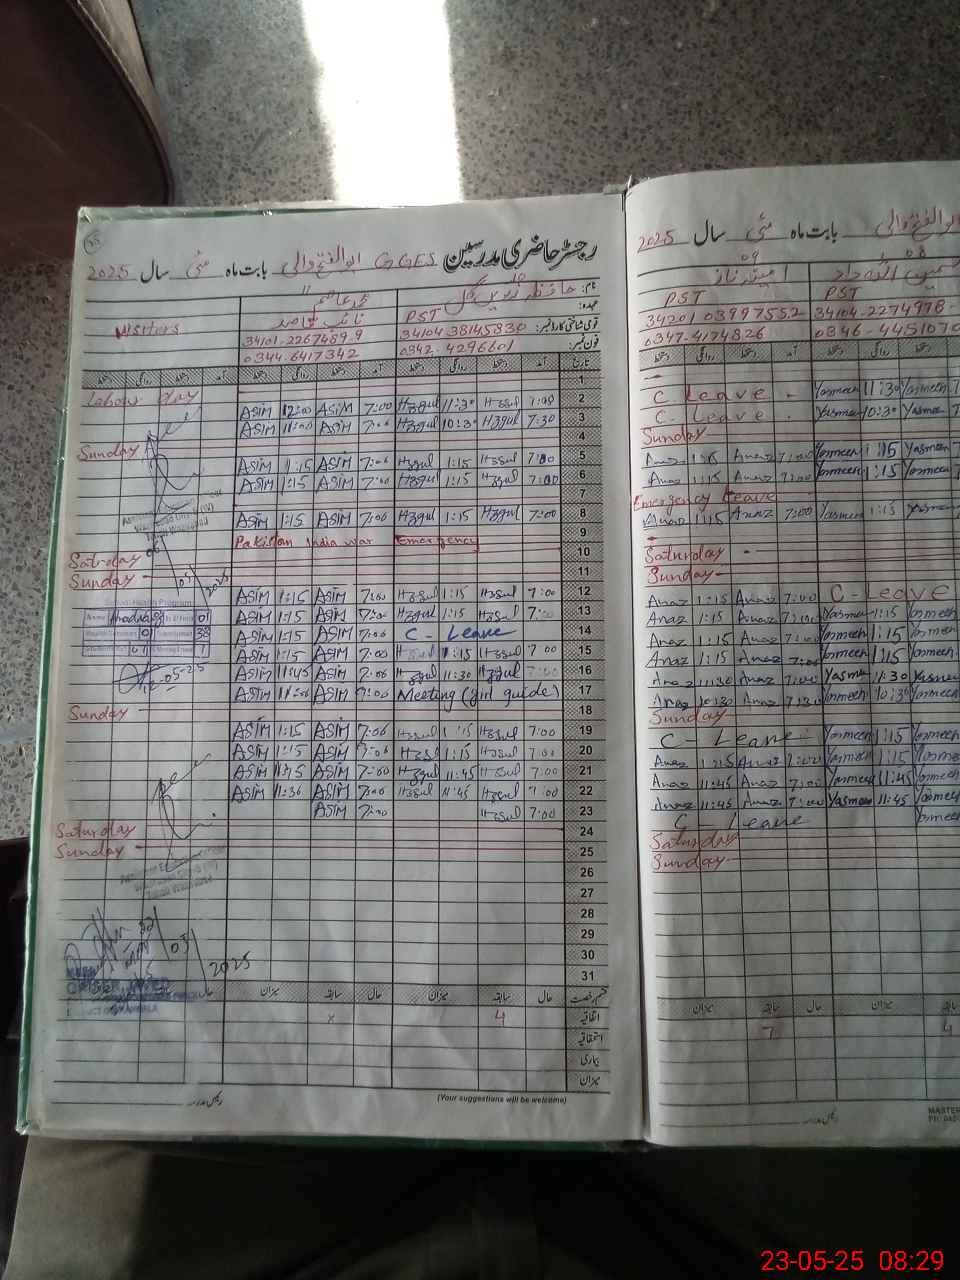 رجسٹر حاضری مدرسین GGES ابوالفتح والی بابت ماہ مئی سال 2025
نام: حافظہ زریں گل 10
محمد عاصم 11
عہدہ: PST
نائب قاصد
Visitors
قومی شناختی کارڈ نمبر: 34104-38145830
34101-2267489-9
فون نمبر: 0342-4296601
0344-6417342
تاریخ آمد دستخط روانگی دستخط آمد دستخط روانگی دستخط
1
Labour Day
2 7:00 Hzgul 11:30 Hzgul 7:00 ASIM 12:00 ASIM
3 7:30 Hzgul 10:30 Hzgul 7:00 ASIM 11:00 ASIM
4
Sunday
5 7:00 Hzgul 1:15 Hzgul 7:00 ASIM 1:15 ASIM
6 7:00 Hzgul 1:15 Hzgul 7:00 ASIM 1:15 ASIM
7
8 7:00 Hzgul 1:15 Hzgul 7:00 ASIM 1:15 ASIM
9
Pakistan India war Emergency
10
Saturday
11
Sunday
12 7:00 Hzgul 1:15 Hzgul 7:00 ASIM 1:15 ASIM
13 7:00 Hzgul 1:15 Hzgul 7:00 ASIM 1:15 ASIM
14 C - Leave 7:00 ASIM 1:15 ASIM
15 7:00 Hzgul 1:15 7:00 ASIM 1:15 ASIM
16 7:00 Hzgul 11:30 Hzgul 7:00 ASIM 11:45 ASIM
17 Meeting (girl guide) 7:00 ASIM ASIM
18
Sunday
19 7:00 Hzgul 1:15 Hzgul 7:00 ASIM 1:15 ASIM
20 7:00 Hzgul 1:15 7:00 ASIM 1:15 ASIM
21 7:00 Hzgul 11:45 Hzgul 7:00 ASIM 11:45 ASIM
22 7:00 Hzgul 11:45 Hzgul 7:00 ASIM 11:30 ASIM
23 7:00 Hzgul 7:00 ASIM
24
Saturday
25
Sunday
26
27
28
29
30
31
05
2025
03
2025
قسم رخصت حال سابقہ میزان حال سابقہ میزان حال
اتفاقیہ 4 x
استحقاقیہ
بیماری
میزان
(Your suggestions will be welcome)
رئیس مدرسہ
ابوالفتح والی بابت ماہ مئی سال 2025
08
09
PST
PST
34104-2274978-
34201 03997552
0346-4451070
0347-4174826
C. Leave -
Yasmeen 11:30 Yasmeen 7
C - Leave .
Yasmeen 10:30 Yasmee 7
Sunday
Anaz 1:15 Anaz 7:00 Yasmeen 1:15 Yasmeen 7
Anaz 1:15 Anaz 7:00 Yasmeen 1:15 Yasmeen 7
Emergency Leave
Anaz 1:15 Anaz 7:00 Yasmeen 1:15 Yasmeen
Saturday
Sunday
Anaz 1:15 Anaz 7:00 C - Leave
Anaz 1:15 Anaz 7:00 Yasmeen 1:15 Yasmeen
Anaz 1:15 Anaz 7:00 Yasmeen 1:15 Yasmeen
Anaz 1:15 Anaz 7:00 Yasmeen 1:15 Yasmeen
Anaz 11:30 Anaz 7:00 Yasmeen 11:30 Yasmeen
Anaz 10:30 Anaz 7:30 Yasmeen 10:30 Yasmeen
Sunday
C - Leave
Yasmeen 1:15 Yasmeen
Anaz 1:15 Anaz 7:00 Yasmeen 1:15 Yasmeen
Anaz 11:45 Anaz 7:00 Yasmeen 11:45 Yasmeen
Anaz 11:45 Anaz 7:00 Yasmeen 11:45 Yasmeen
C - Leave
Yasmeen
Saturday
Sunday
حال سابقہ میزان حال سابقہ میزان
7 4
رئیس مدرسہ
MASTER
23-05-25 08:29